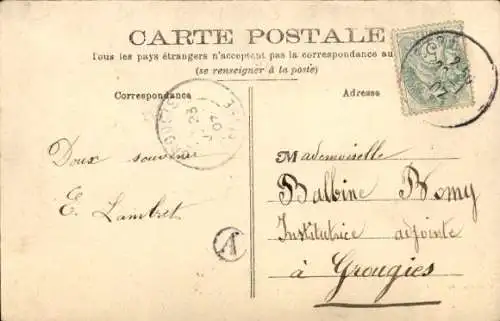 CARTE POSTALE
Tous les pays étrangers n'acceptent pas la correspondance au
(se renseigner à la poste)
Correspondance
Adresse
Doux souvenir
E. Lambret
A
Mademoiselle
Balbine Romy
Institutrice adjointe
à Grougies